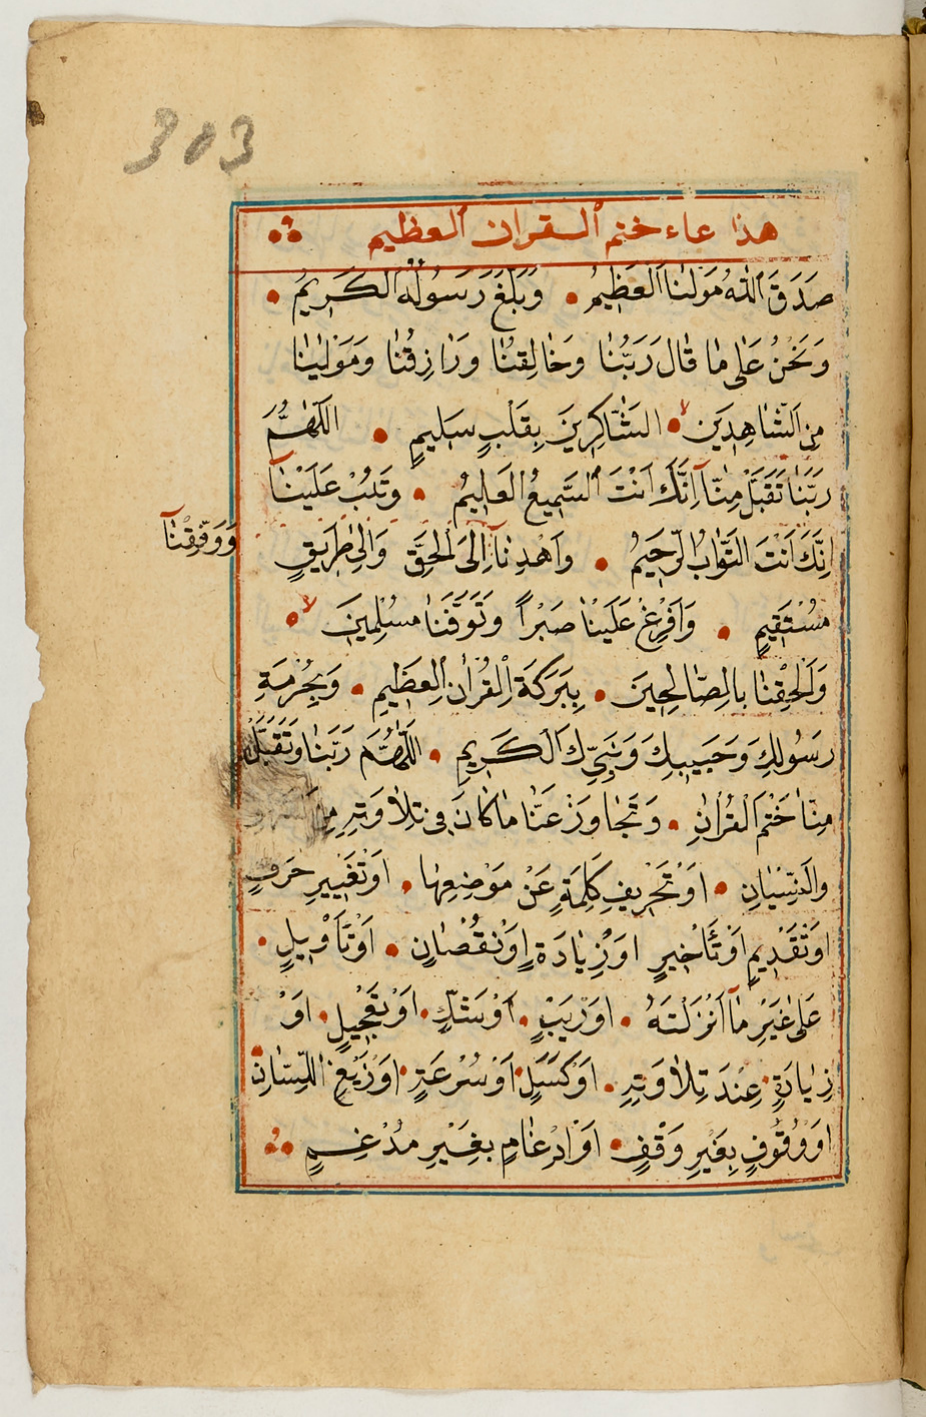 303
هذا عاء ختم القران العظيم
صَدَقَ اللّٰهُ مَوْلٰنَا الْعَظِيمُ وَبَلَّغَ رَسُولُهُ الْكَرِيمُ
وَنَحْنُ عَلٰى مَا قَالَ رَبُّنَا وَخَالِقُنَا وَرَازِقُنَا وَمَوْلٰينَا
مِنَ الشَّاهِدِينَ الشَّاكِرِينَ بِقَلْبٍ سَلِيمٍ اللّٰهُمَّ
رَبَّنَا تَقَبَّلْ مِنَّا اِنَّكَ اَنْتَ السَّمِيعُ الْعَلِيمُ وَتُبْ عَلَيْنَا
وَوَفِّقْنَا
اِنَّكَ اَنْتَ التَّوَّابُ الرَّحِيمُ وَاهْدِنَا اِلَى الْحَقِّ وَاِلٰى طَرِيقٍ
مُسْتَقِيمٍ وَاَفْرِغْ عَلَيْنَا صَبْرًا وَتَوَفَّنَا مُسْلِمِينَ
وَاَلْحِقْنَا بِالصَّالِحِينَ بِبَرَكَةِ الْقُرْاٰنِ الْعَظِيمِ وَبِحُرْمَةِ
رَسُولِكَ وَحَبِيبِكَ وَنَبِيِّكَ الْكَرِيمِ اللّٰهُمَّ رَبَّنَا وَتَقَبَّلْ
مِنَّا خَتْمَ الْقُرْاٰنِ وَتَجَاوَزْ عَنَّا مَا كَانَ فِى تِلَاوَتِهِ مِنَ
وَالنِّسْيَانِ اَوْ تَحْرِيفِ كَلِمَةٍ عَنْ مَوْضِعِهَا اَوْ تَغْيِيرِ حَرْفٍ
اَوْ تَقْدِيمٍ اَوْ تَأْخِيرٍ اَوْ زِيَادَةٍ اَوْ نُقْصَانٍ اَوْ تَأْوِيلٍ
عَلٰى غَيْرِ مَا اَنْزَلْتَهُ اَوْ رَيْبٍ اَوْ شَكٍّ اَوْ تَعْجِيلٍ اَوْ
زِيَادَةٍ عِنْدَ تِلَاوَتِهِ اَوْ كَسَلٍ اَوْ سُرْعَةٍ اَوْ زَيْغِ اللِّسَانِ
اَوْ وُقُوفٍ بِغَيْرِ وَقْفٍ اَوْ اِدْغَامٍ بِغَيْرِ مُدْغَمٍ